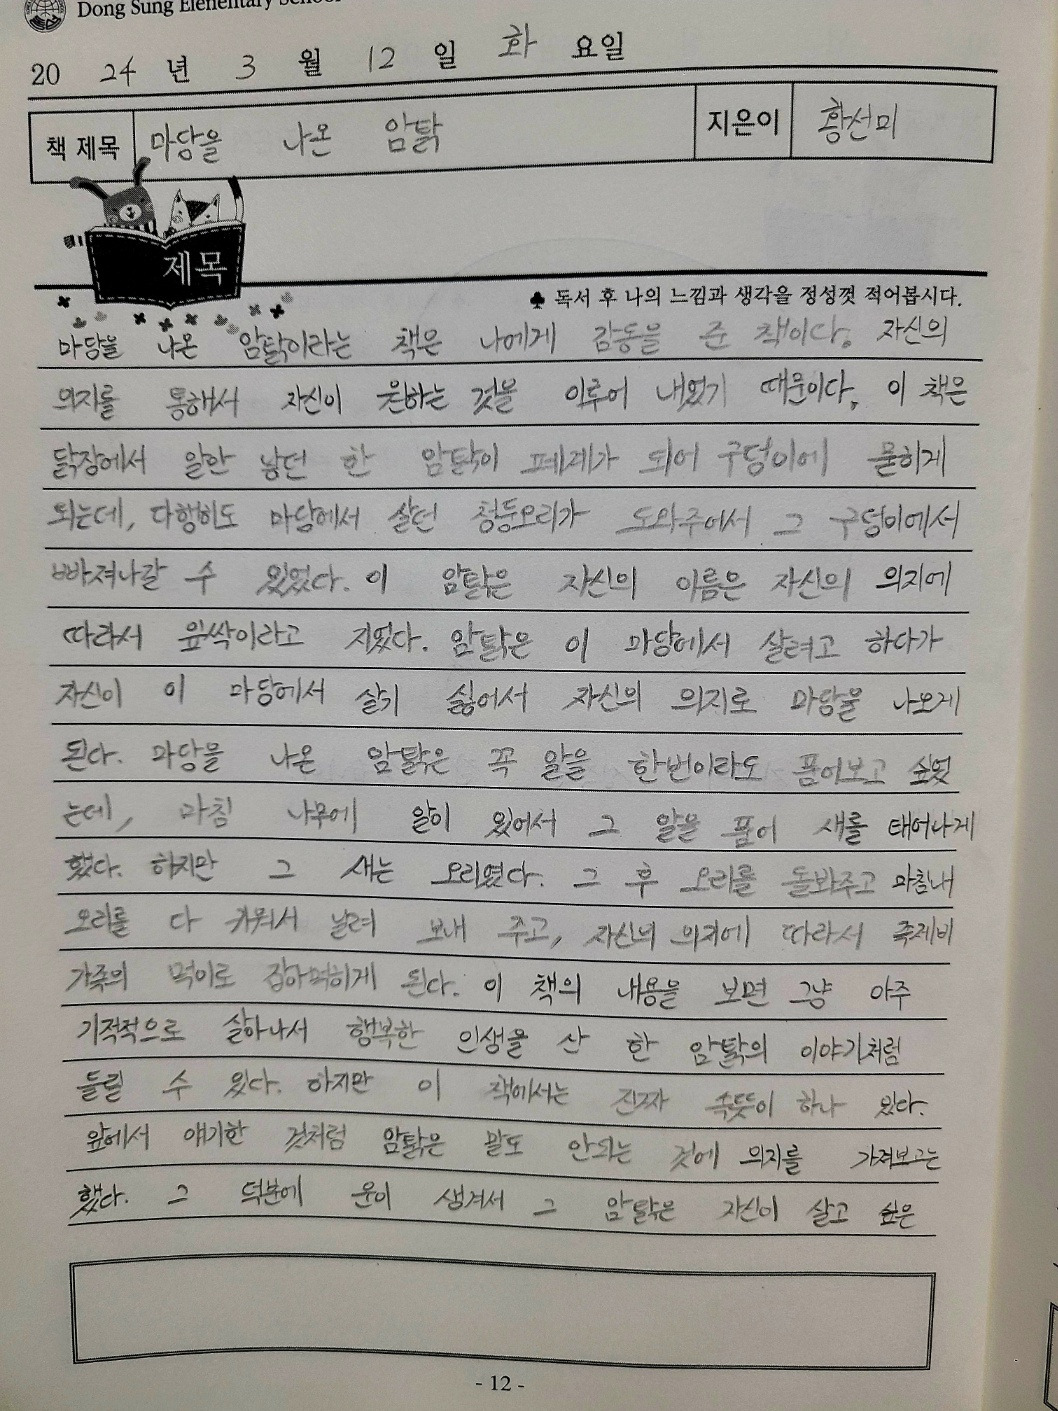 Dong Sung Elementary School
2024년 3월 12일 화요일
책 제목 마당을 나온 암탉 지은이 황선미
제목
♣ 독서 후 나의 느낌과 생각을 정성껏 적어봅시다.
마당을 나온 암탉이라는 책은 나에게 감동을 준 책이다. 자신의
의지를 통해서 자신이 원하는 것을 이루어 내었기 때문이다. 이 책은
닭장에서 알만 낳던 한 암탉이 폐계가 되어 구덩이에 묻히게
되는데, 다행히도 마당에서 살던 청둥오리가 도와주어서 그 구덩이에서
빠져나갈 수 있었다. 이 암탉은 자신의 이름은 자신의 의지에
따라서 잎싹이라고 지었다. 암탉은 이 마당에서 살려고 하다가
자신이 이 마당에서 살기 싫어서 자신의 의지로 마당을 나오게
된다. 마당을 나온 암탉은 꼭 알을 한번이라도 품어보고 싶었
는데, 마침 나무에 알이 있어서 그 알을 품어 새를 태어나게
했다. 하지만 그 새는 오리였다. 그 후 오리를 돌봐주고 마침내
오리를 다 키워서 날려 보내 주고, 자신의 의지에 따라서 족제비
가족의 먹이로 잡아먹히게 된다. 이 책의 내용을 보면 그냥 아주
기적적으로 살아나서 행복한 인생을 산 한 암탉의 이야기처럼
들릴 수 있다. 하지만 이 책에서는 진짜 속뜻이 하나 있다.
앞에서 얘기한 것처럼 암탉은 말도 안되는 것에 의지를 가져보고는
했다. 그 덕분에 운이 생겨서 그 암탉은 자신이 살고 싶은
- 12 -